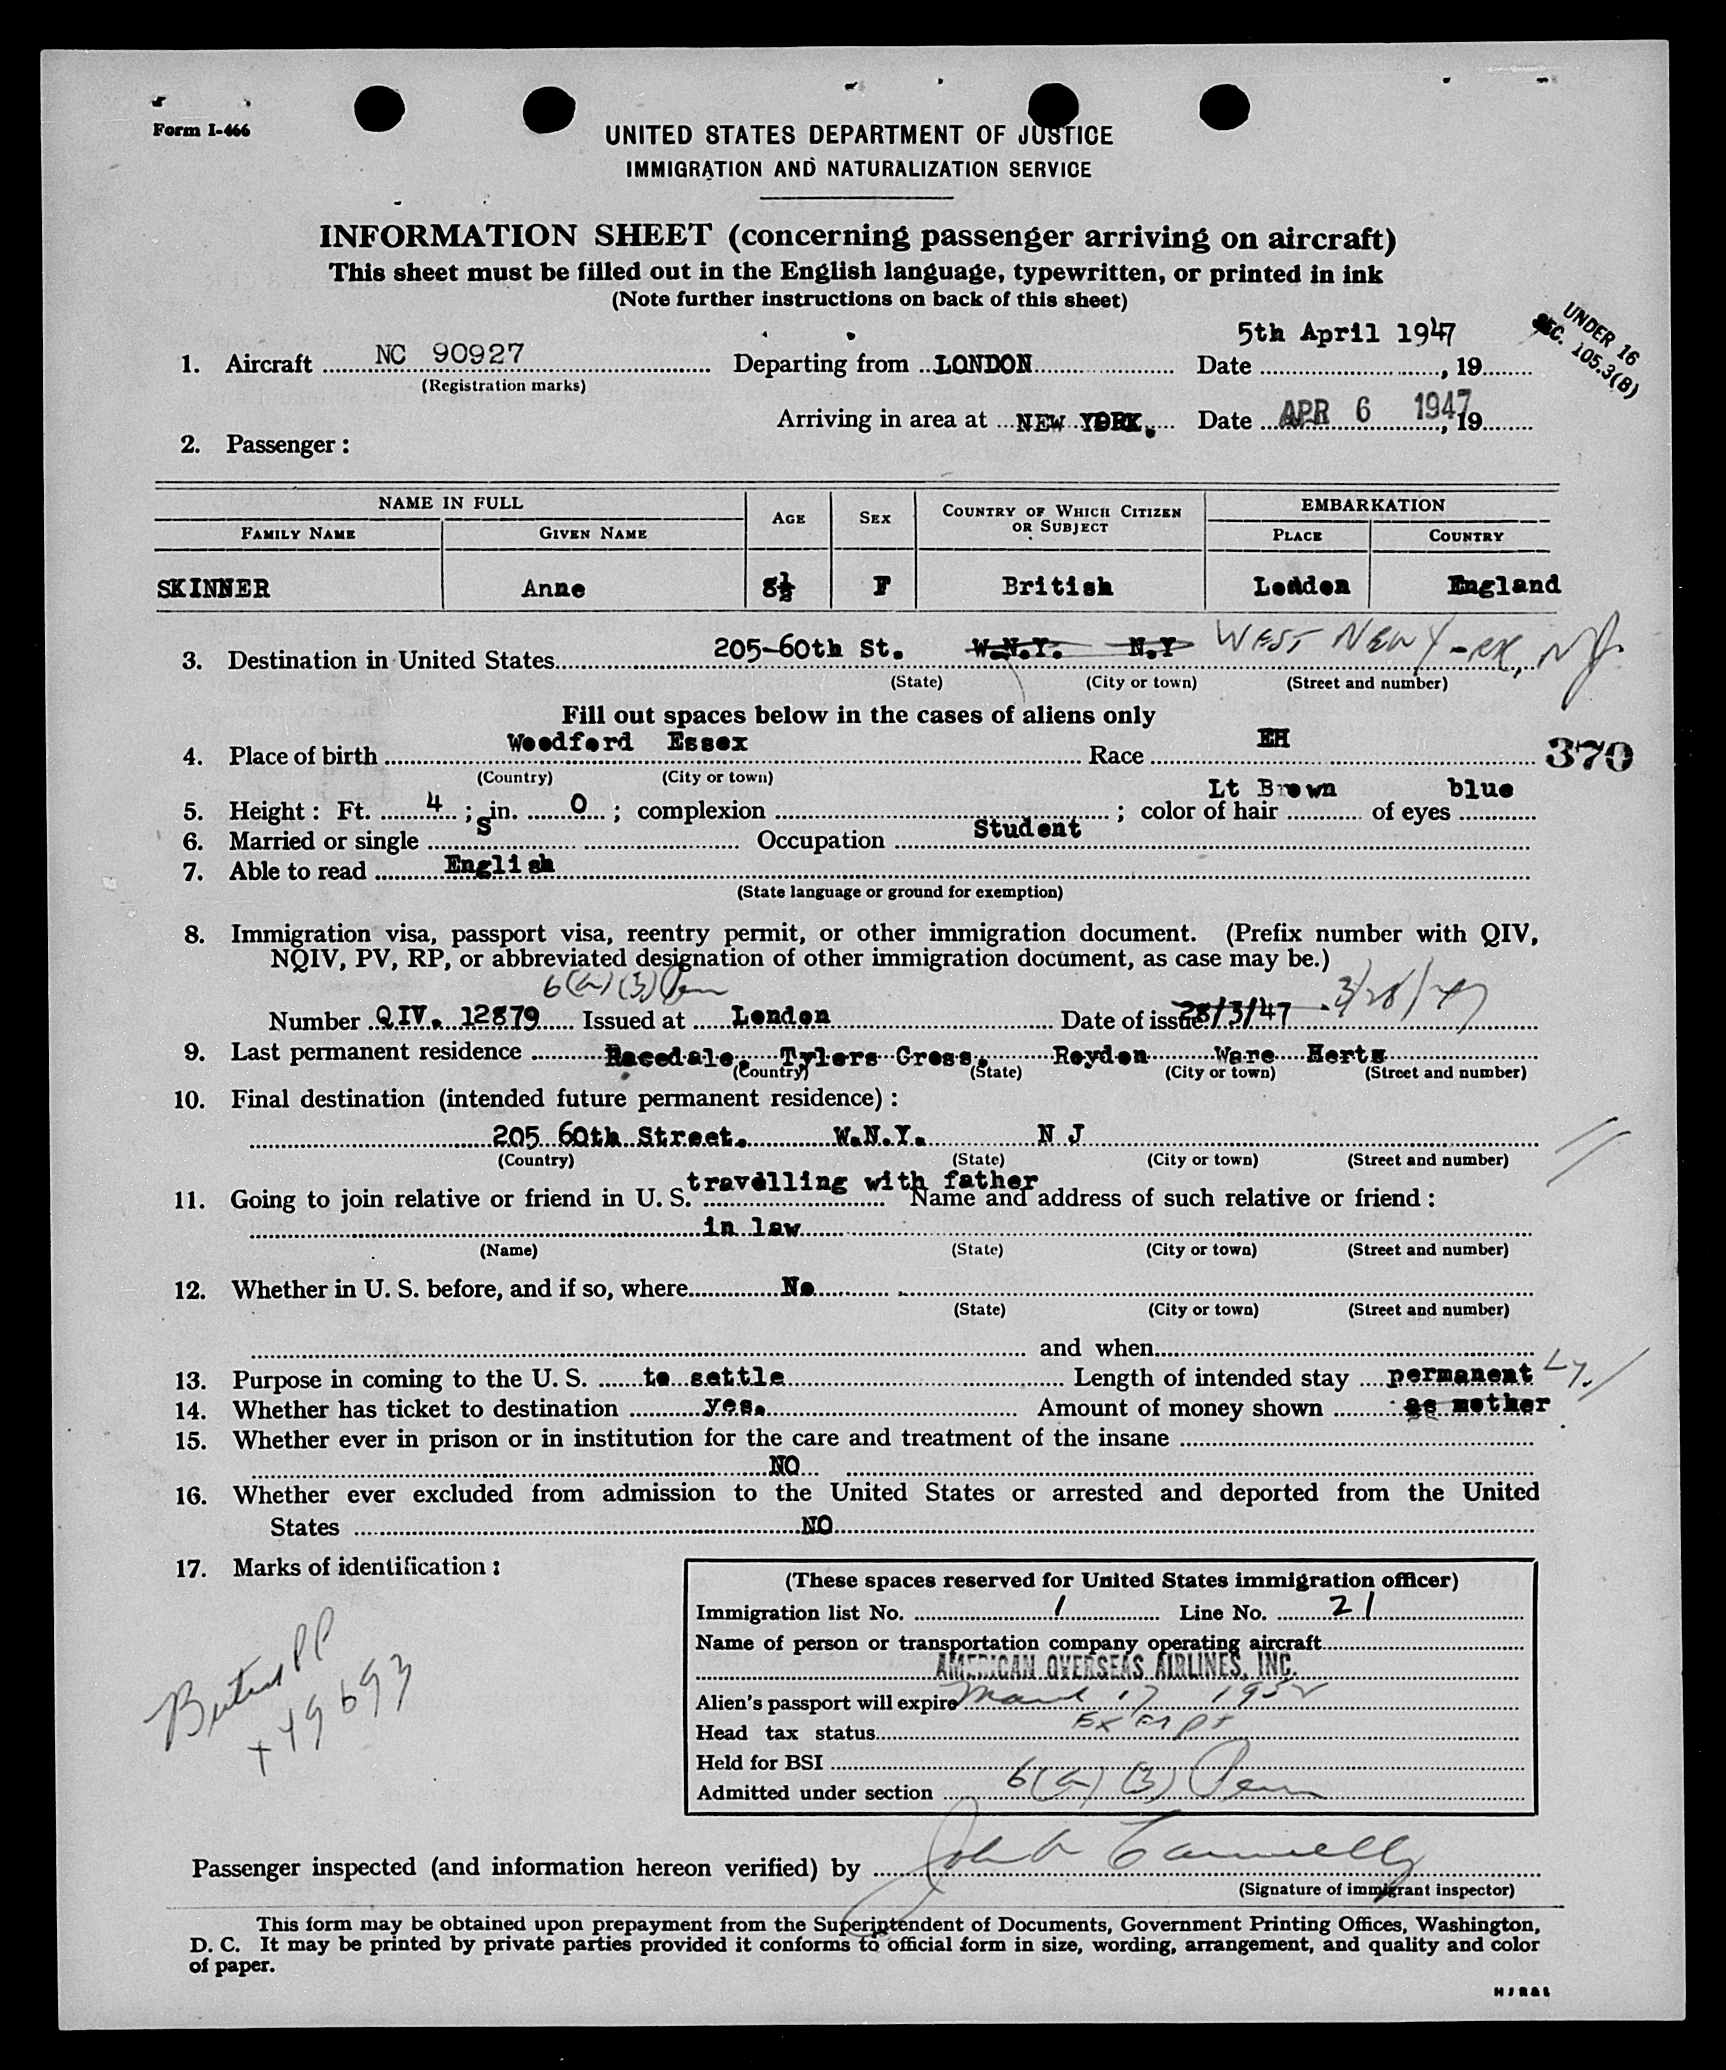 Form I-466
UNITED STATES DEPARTMENT OF JUSTICE
IMMIGRATION AND NATURALIZATION SERVICE
INFORMATION SHEET (concerning passenger arriving on aircraft)
This sheet must be filled out in the English language, typewritten, or printed in ink
(Note further instructions on back of this sheet)
UNDER 16
SEC. 105.3(B)
5th April 1947
1. Aircraft NC 90927 Departing from LONDON Date , 19
(Registration marks)
Arriving in area at NEW YORK. Date APR 6 1947, 19
2. Passenger:
NAME IN FULL AGE SEX COUNTRY OF WHICH CITIZEN OR SUBJECT EMBARKATION
FAMILY NAME GIVEN NAME PLACE COUNTRY
SKINNER Anne 8½ F British London England
3. Destination in United States 205-60th St. W.N.Y. N.Y WEST NEW Y-RK, NJ.
(State) (City or town) (Street and number)
Fill out spaces below in the cases of aliens only
4. Place of birth Woodford Essex Race EH
370
(Country) (City or town)
5. Height: Ft. 4; in. 0; complexion ; color of hair Lt Brown of eyes blue
6. Married or single S Occupation Student
7. Able to read English
(State language or ground for exemption)
8. Immigration visa, passport visa, reentry permit, or other immigration document. (Prefix number with QIV,
NQIV, PV, RP, or abbreviated designation of other immigration document, as case may be.)
6(a)(3) Perm
Number QIV. 12879 Issued at London Date of issue 28/3/47 3/28/47
9. Last permanent residence Racedale, Tylers Cross. Roydon Ware Herts
(Country) (State) (City or town) (Street and number)
10. Final destination (intended future permanent residence):
205 60th Street. W.N.Y. N J
(Country) (State) (City or town) (Street and number)
11. Going to join relative or friend in U. S. travelling with father Name and address of such relative or friend:
in law
(Name) (State) (City or town) (Street and number)
12. Whether in U. S. before, and if so, where No
(State) (City or town) (Street and number)
and when
13. Purpose in coming to the U. S. to settle Length of intended stay permanent
14. Whether has ticket to destination yes. Amount of money shown as mother
15. Whether ever in prison or in institution for the care and treatment of the insane
NO
16. Whether ever excluded from admission to the United States or arrested and deported from the United
States NO
17. Marks of identification:
British PP
+ 49693
(These spaces reserved for United States immigration officer)
Immigration list No. 1 Line No. 21
Name of person or transportation company operating aircraft
AMERICAN OVERSEAS AIRLINES, INC.
Alien's passport will expire March 17 1952
Head tax status Exempt
Held for BSI
Admitted under section 6(a)(3) Perm
Passenger inspected (and information hereon verified) by
(Signature of immigrant inspector)
This form may be obtained upon prepayment from the Superintendent of Documents, Government Printing Offices, Washington,
D. C. It may be printed by private parties provided it conforms to official form in size, wording, arrangement, and quality and color
of paper.